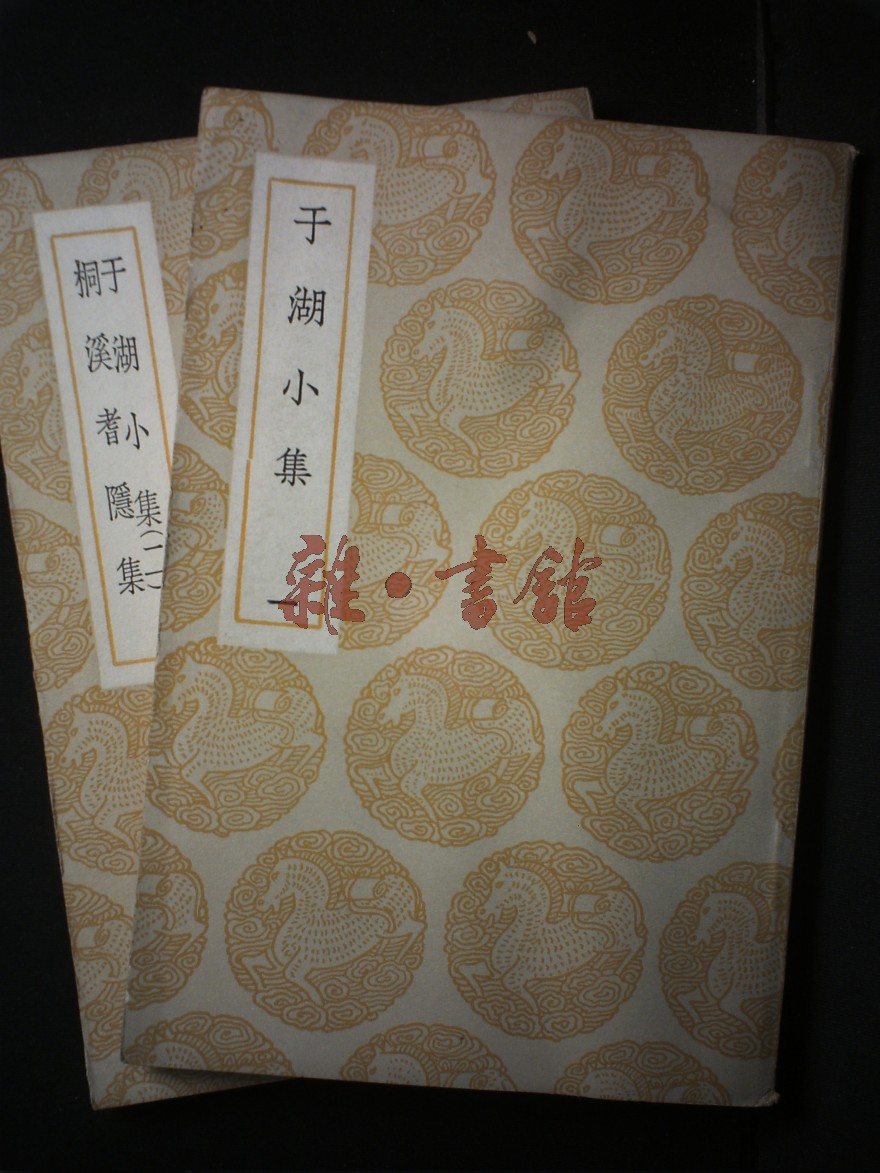 于湖小集
一
于湖小集(二)
桐溪耆隱集
雜·書館